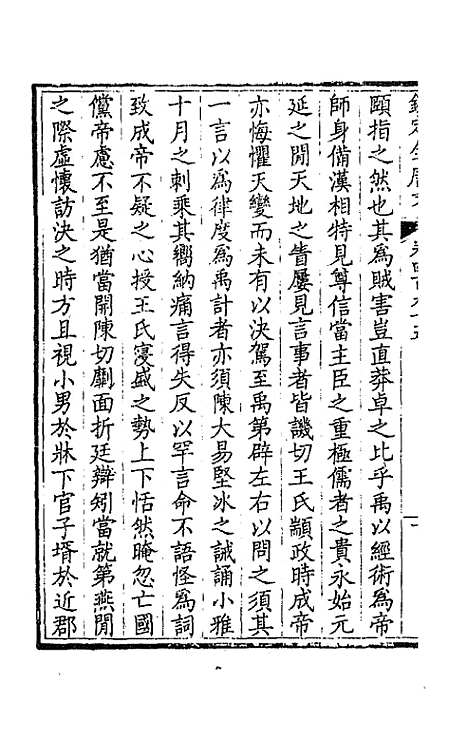 頤指之然也其為賊害豈直莽卓之比乎禹以經術為帝
師身備漢相特見尊信當主臣之重極儒者之貴永始元
延之間天地之眚屢見言事者皆譏切王氏顓政時成帝
亦悔懼天變而未有以決駕至禹第辟左右以問之須其
一言以為律度為禹計者亦須陳大易堅冰之誡誦小雅
十月之刺乘其嚮納痛言得失反以罕言命不語怪為詞
致成帝不疑之心授王氏寖盛之勢上下恬然晻忽亡國
儻帝慮不至是猶當開陳切劘面折廷辯矧當就第燕閒
之際虛懷訪決之時方且視小男於牀下官子壻於近郡